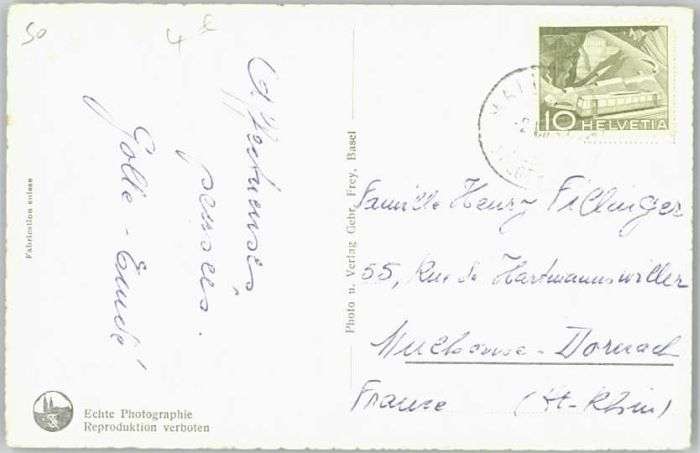 50
4
Affectueuses
pensées.
Fabrication suisse
Echte Photographie
Reproduktion verboten
Photo u. Verlag Gebr. Frey, Basel
10 HELVETIA
Famille Henry Fillinger
55, Rue de Hartmannswiller
Mulhouse-Dornach
France (Ht-Rhin)